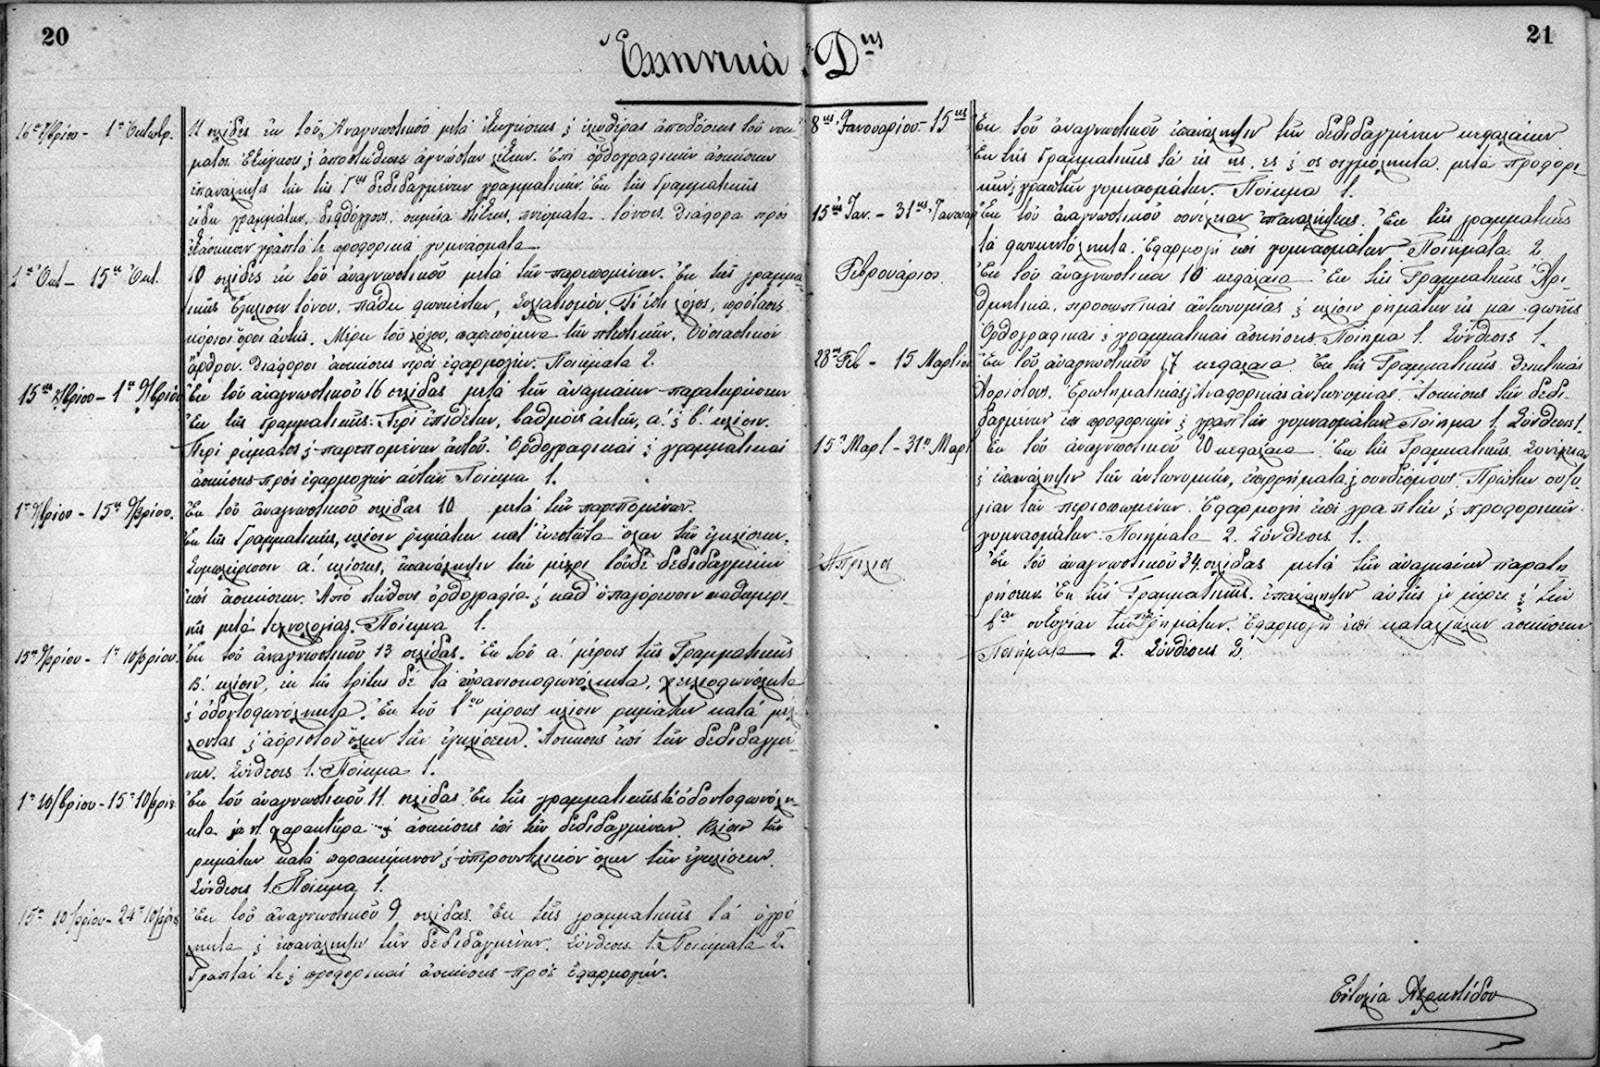 20
Ἑλληνικά Δης
16η 7/βρίου - 1η Ὀκτωβρ.
11 σελίδες ἐκ τοῦ Ἀναγνωστικοῦ μετά ἐξηγήσεως & ἐλευθέρας ἀποδόσεως τοῦ νοή-
ματος. Ἐξήγησις & ἀποστήθισις ἀγνώστων λέξεων. Ἐπί ὀρθογραφικῶν ἀσκήσεων
ἐπανάληψις τῶν τῆς Γης δεδιδαγμένων γραμματικῶν. Ἐκ τῆς Γραμματικῆς
εἴδη γραμμάτων, διφθόγγους, σημεῖα στίξεως, πνεύματα, τόνους. Διάφορα πρός
ἐξάσκησιν γραπτά τε προφορικά γυμνάσματα
1η Ὀκτ - 15η Ὀκτ.
10 σελίδες ἐκ τοῦ ἀναγνωστικοῦ μετά τῶν παρεπομένων. Ἐκ τῆς γραμμα-
τικῆς ἔγκλισιν τόνου, πάθη φωνηέντων, συλλαβισμόν. Τί ἐστι λόγος, πρότασις
κύριοι ὅροι αὐτῆς. Μέρη τοῦ λόγου, παρεπόμενα τῶν πτωτικῶν. Οὐσιαστικόν
ἄρθρον. Διάφοροι ἀσκήσεις πρός ἐφαρμογήν. Ποιήματα 2.
15ης 8/βρίου - 1η 9/βρίου
Ἐκ τοῦ ἀναγνωστικοῦ 16 σελίδας μετά τῶν ἀναγκαίων παρατηρήσεων
Ἐκ τῆς Γραμματικῆς: Περί ἐπιθέτων, βαθμούς αὐτῶν, α΄. & β΄. κλίσιν.
Περί ρήματος & παρεπομένων αὐτοῦ. Ὀρθογραφικαί & γραμματικαί
ἀσκήσεις πρός ἐφαρμογήν αὐτῶν. Ποίημα 1.
1η 9/βρίου - 15η 9/βρίου.
Ἐκ τοῦ ἀναγνωστικοῦ σελίδας 10 μετά τῶν παρεπομένων.
Ἐκ τῆς Γραμματικῆς, κλίσιν ρημάτων κατ' ἐνεστῶτα ὅλων τῶν ἐγκλίσεων.
Συμπλήρωσιν α΄. κλίσεως, ἐπανάληψιν τῶν μέχρι τοῦδε δεδιδαγμένων
ἐπί ἀσκήσεων. Ἀπό στήθους ὀρθογραφία & καθ' ὑπαγόρευσιν καθημερι-
νῶς μετά τεχνολογίας. Ποίημα 1.
15η 9/βρίου - 1η 10/βρίου.
Ἐκ τοῦ ἀναγνωστικοῦ 13 σελίδας. Ἐκ τοῦ α΄. μέρους τῆς Γραμματικῆς
Β΄. κλίσιν, ἐκ τῆς τρίτης δέ τά οὐρανισκοφωνόληκτα, χειλεοφωνόληκτα
& ὀδοντοφωνόληκτα. Ἐκ τοῦ μέρους κλίσιν ρημάτων κατά μέλ-
λοντας & ἀόριστον ὅλων τῶν ἐγκλίσεων. Ἀσκήσεις ἐπί τῶν δεδιδαγμέ-
νων. Σύνθεσις 1. Ποίημα 1.
1η 10/βρίου - 15η 10/βρίου
Ἐκ τοῦ ἀναγνωστικοῦ 11 σελίδας. Ἐκ τῆς γραμματικῆς τά ὀδοντοφωνόλη-
κτα χαρακτῆρα & ἀσκήσεις ἐπί τῶν δεδιδαγμένων. Κλίσιν τῶν
ρημάτων κατά παρακείμενον & ὑπερσυντέλικον ὅλων τῶν ἐγκλίσεων.
Σύνθεσις 1. Ποίημα 1.
15η 10/βρίου - 24η 10/βρίου
Ἐκ τοῦ ἀναγνωστικοῦ 9 σελίδας. Ἐκ τῆς γραμματικῆς τά ὑγρό-
ληκτα & ἐπανάληψιν τῶν δεδιδαγμένων. Σύνθεσις 1. Ποιήματα 2.
Γραπταί τε & προφορικαί ἀσκήσεις πρός ἐφαρμογήν.
21
8ης Ἰανουαρίου - 15ης
Ἐκ τοῦ ἀναγνωστικοῦ ἐπανάληψιν τῶν δεδιδαγμένων κεφαλαίων.
Ἐκ τῆς Γραμματικῆς τά εἰς ης, ες & ος σιγμόληκτα μετά προφορι-
κῶν & γραπτῶν γυμνασμάτων. Ποίημα 1.
15ης Ἰαν. - 31ης Ἰανουαρ
Ἐκ τοῦ ἀναγνωστικοῦ συνέχειαν ἐπαναλήψεως. Ἐκ τῆς γραμματικῆς
τά φωνηεντόληκτα. Ἐφαρμογή ἐπί γυμνασμάτων. Ποιήματα 2
Φεβρουάριος.
Ἐκ τοῦ ἀναγνωστικοῦ 10 κεφάλαια. Ἐκ τῆς Γραμματικῆς Ἀρι-
θμητικά, προσωπικάς ἀντωνυμίας & κλίσιν ρημάτων εἰς μαι φωνῆς
Ὀρθογραφικαί & γραμματικαί ἀσκήσεις. Ποίημα 1. Σύνθεσις 1.
28ης Φεβ - 15 Μαρτίου
Ἐκ τοῦ ἀναγνωστικοῦ 17 κεφάλαια. Ἐκ τῆς Γραμματικῆς Δεικτικάς
Ἀορίστους, Ἐρωτηματικάς, Ἀναφορικάς ἀντωνυμίας. Ἀσκήσεις τῶν δεδι-
δαγμένων ἐπί προφορικῶν & γραπτῶν γυμνασμάτων. Ποίημα 1. Σύνθεσις 1.
15η Μαρτ - 31η Μαρτ
Ἐκ τοῦ ἀναγνωστικοῦ 20 κεφάλαια. Ἐκ τῆς Γραμματικῆς. Συνέχειαν
& ἐπανάληψιν τῶν ἀντωνυμιῶν, ἐπιρρήματα & συνδέσμους. Πρώτην συζυ-
γίαν τῶν περισπωμένων. Ἐφαρμογή ἐπί γραπτῶν & προφορικῶν
γυμνασμάτων. Ποιήματα 2. Σύνθεσις 1.
Ἀπρίλιος
Ἐκ τοῦ ἀναγνωστικοῦ 34 σελίδας μετά τῶν ἀναγκαίων παρατη-
ρήσεων. Ἐκ τῆς Γραμματικῆς. ἐπανάληψιν αὐτῆς & τήν
συζυγίαν τῶν ρημάτων. Ἐφαρμογή ἐπί καταλλήλων ἀσκήσεων
Ποιήματα 2. Συνθέσεις 2.